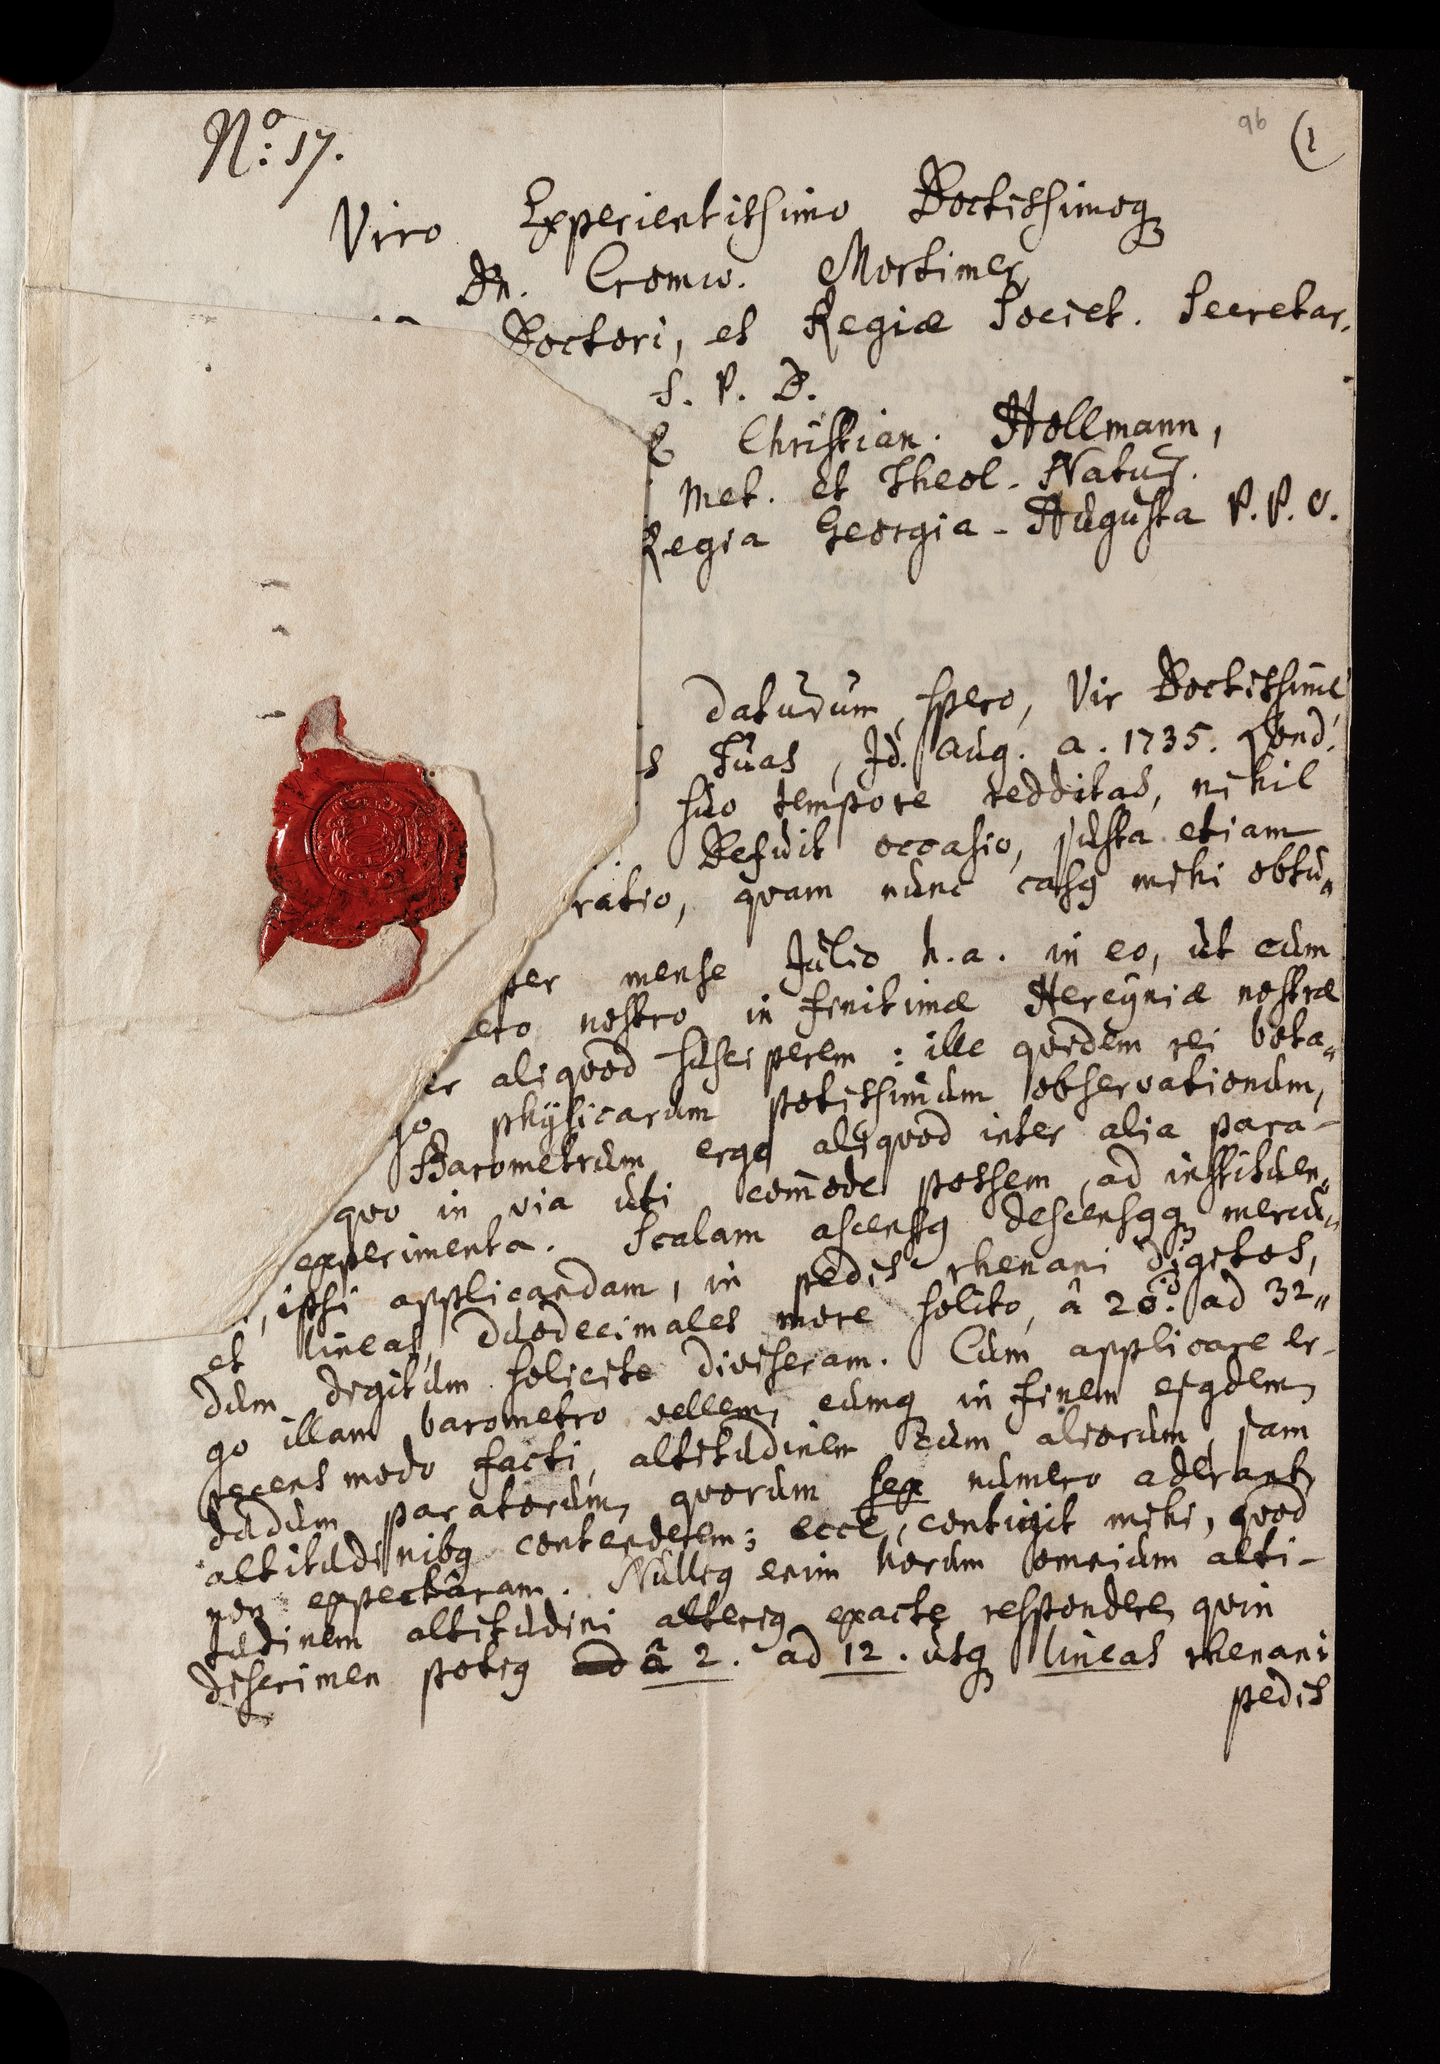 96 (1
No: 17.
Viro Experientissimo Doctissimoq
Dn. Cromw. Mortimer,
Doctori, et Regiæ Societ. Secretar.
S. P. D.
Christian. Hollmann,
Met. et Theol. Natur.
Regia Georgia-Augusta P. P. O.
daturum, spero, Vir Doctissime
s tuas, Id. Aug. a. 1735. Lond.
suo tempore redditas, nihil
Defuit occasio, justa etiam
ratio, quam nunc casq mihi obtu„
per mense Julio h. a. in eo, ut cum
ero nostro in finitimæ Hercyniæ nostræ
er aliquod susciperem : ille quidem rei bota„
go physicarum potissimum observationum,
Barometrum ergo aliquod inter alia para-
quo in via uti com̄ode possem, ad instituen„
experimenta. Scalam ascensq descensqq mercu„
, ipsi applicandam, in pedis rhenani digitos,
et lineas, duodecimales more solito, â 20. ad 32„
dum digitum solicite diviseram. Cum applicare er-
go illam barometro vellem, eumq in finem ejqdem,
recens modo facti, altitudinem cum aliorum, jam
dudum paratorum, quorum sex numero aderant,
altitudinibq contenderem; ecce, contigit mihi, quod
non expectâram. Nulliq enim horum omnium alti-
tudinem altitudini alteriq exacte respondere, quin
discrimen potiq â 2. ad 12. usq lineas rhenani
pedis